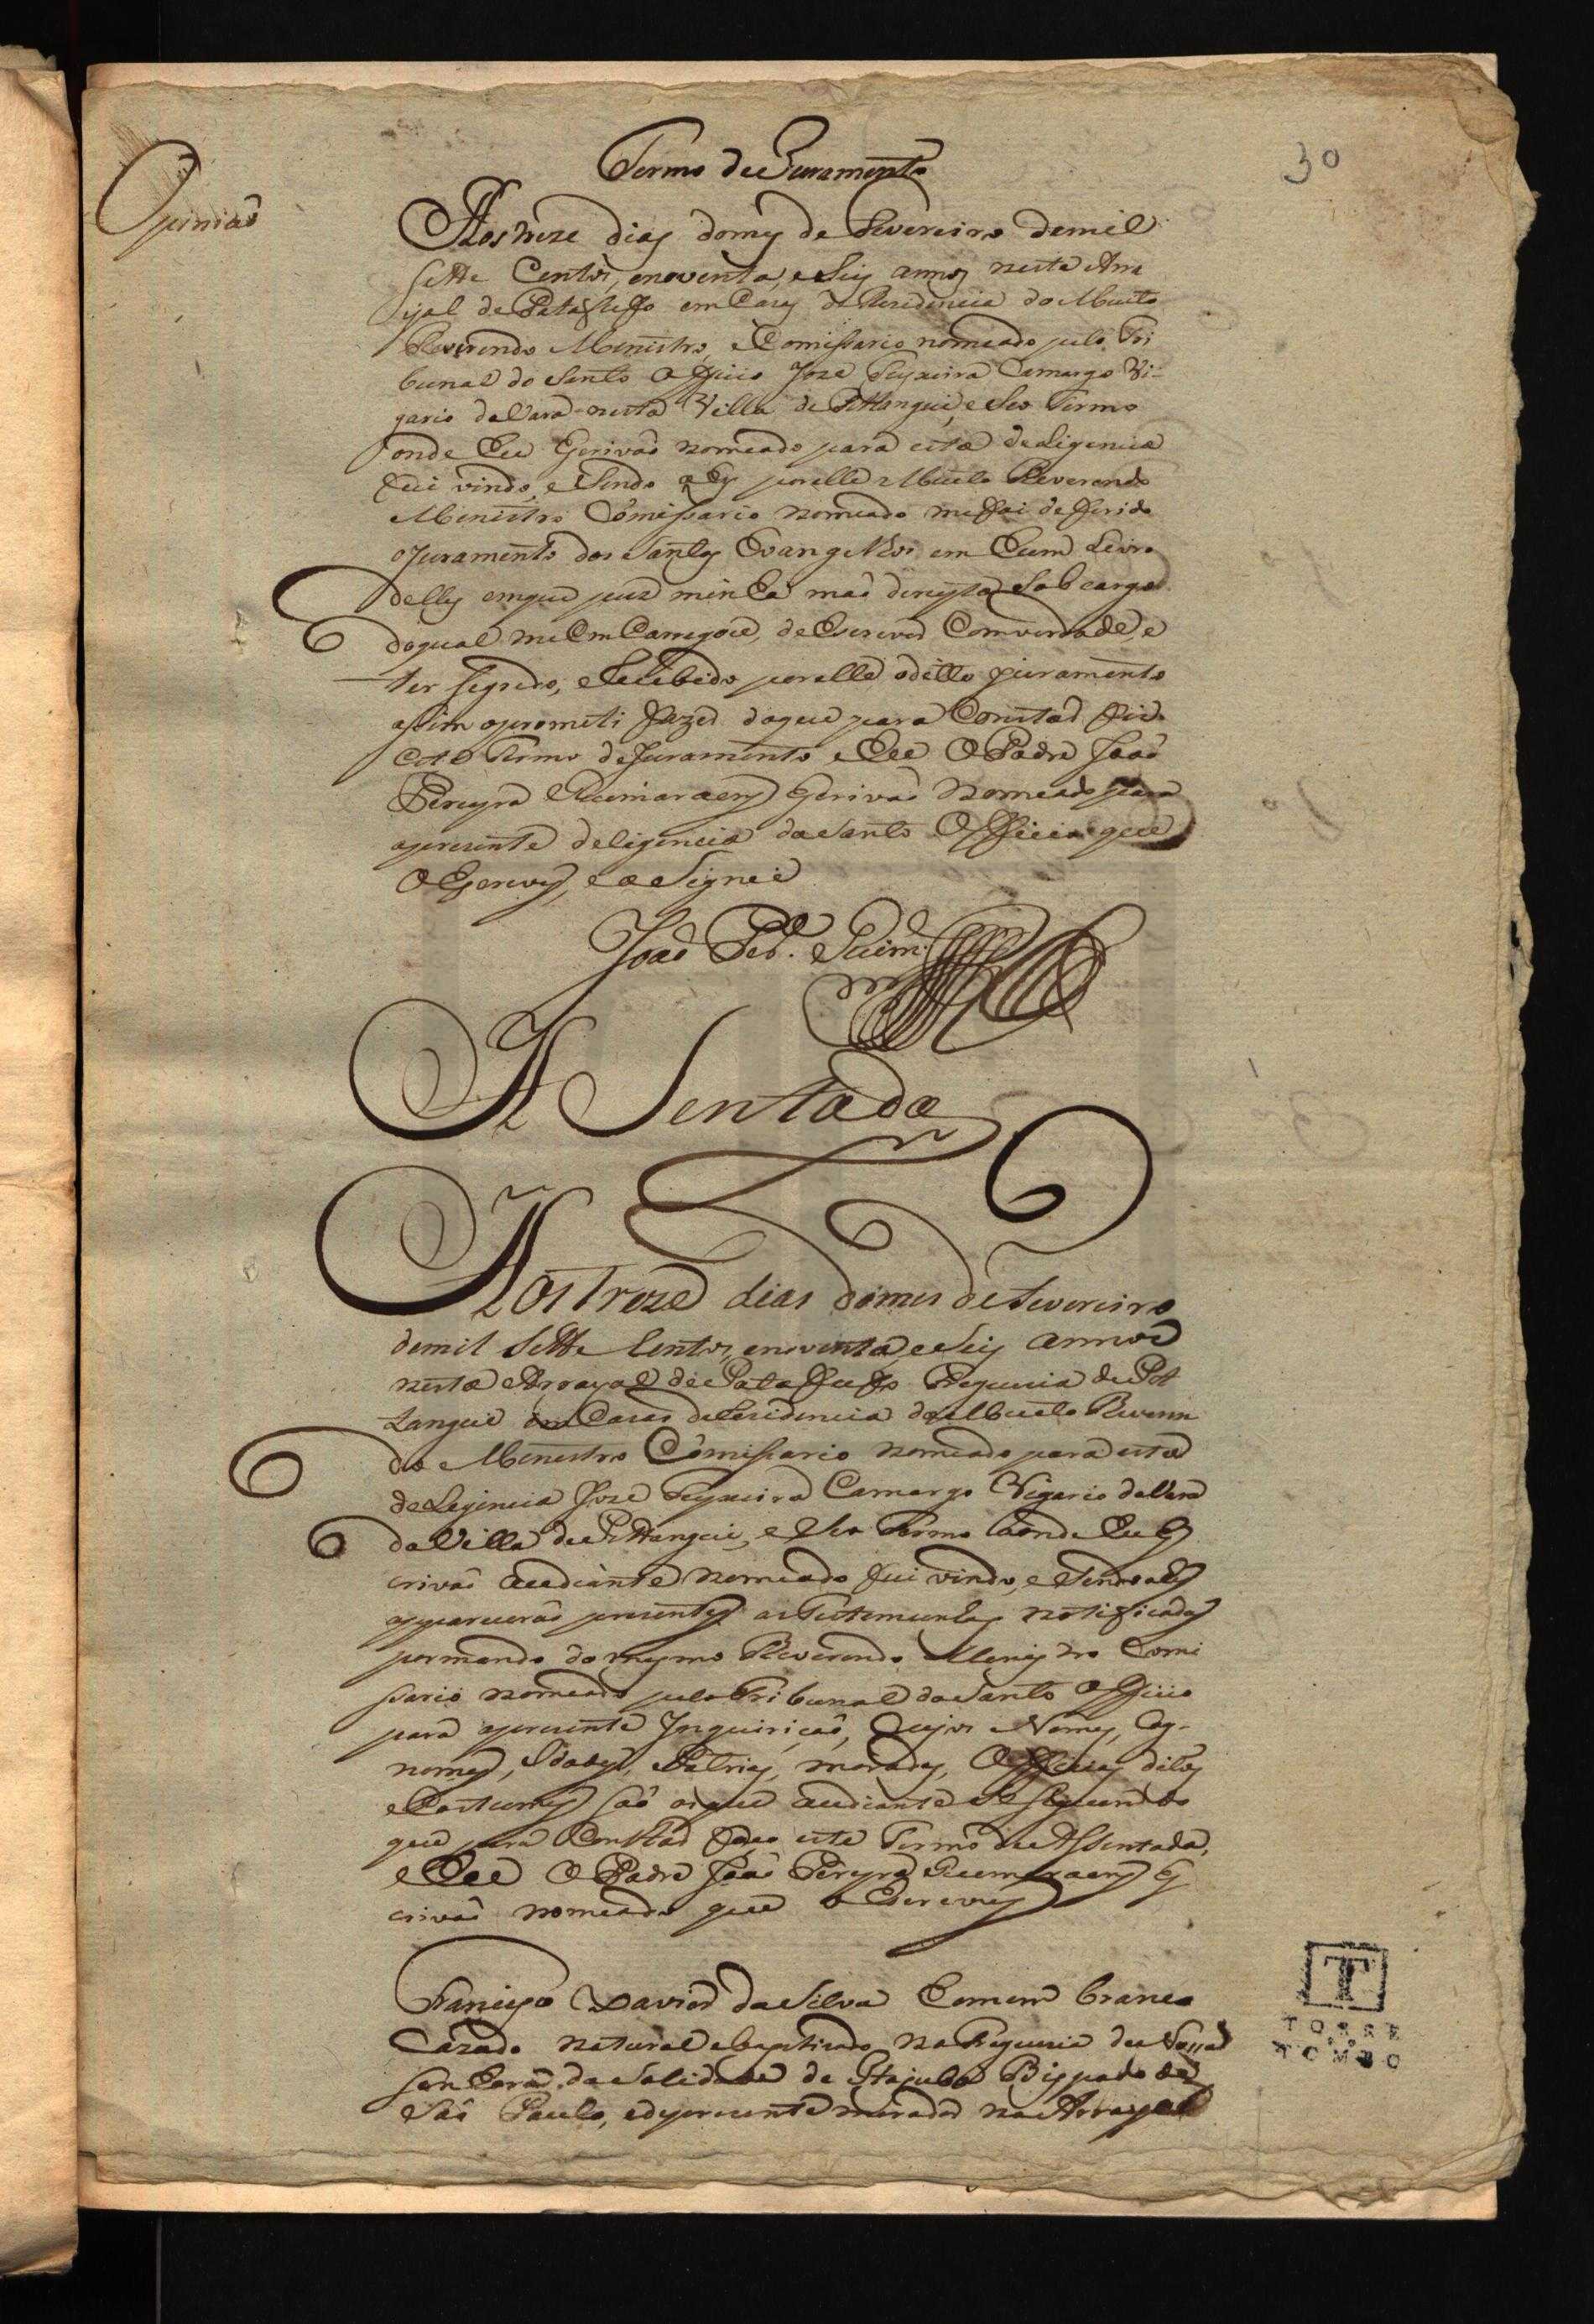 30
Opiniaõ
Termo de Juramento
Aos treze dias do mes de Fevereiro de mil
sette Centos, e noventa, e seis annos nesta Arra
yal de Patafufo em Cazas de Rezidencia do Muito
Reverendo Menistro, e Comissario nomeado pelo Tri
bunal do Santo Officio Joze Teyxeira Camargo Vi-
gario da Vara nesta Villa de Pittangui, e Seo Termo
onde Eu Escrivaõ nomeado para esta deLigencia
fui vindo, e Sendo ahy por elle Muito Reverendo
Menistro Comissario nomeado me foi defferido
o Juramento dos Santos Evangelhos em hum Livro
delles em que puz minha maõ dereyta Sob cargo
do qual me Em Carregou, de Escrever Com verdade, e
ter segredo, e Recebido por elle o ditto juramento
assim o prometi fazer do que para Constar fiz
este Termo de Juramento e Eu O Padre Joaõ
Pereyra Guimaraens Escrivaõ Nomeado para
a prezente deligencia do Santo Officio que
O Escrevy, e a Signei
Joaõ Per.ª Guim.
A Sentada
Aos treze dias do mes de Fevereiro
de mil Sette Centos, e noventa, e Seis annos
nesta Arrayal de Patafufo Freguezia de Pit
tangui em Cazas de Rezidencia do Muito Reveren
do Menistro Comissario nomeado para esta
deLigencia Joze Teyxeira Camargo Vigario da Vara
da Villa de Pittangui, e Seo Termo aonde Eu Es
crivaõ aodiante nomeado fui vindo, e Sendo ahy
appareceraõ prezentes as Testemunhas notificadas
por mando do mesmo Reverendo Menistro Comi
ssario nomeado pelo Tribunal do Santo Officio
para a prezente Inquiriçaõ, Cujos Nomes, Cog-
nomes, Idades, Patrias, moradas, Officios, ditos
e Costumes saõ os que aodiante se seguem do
que para Constar faço este Termo de Assentada,
e Eu O Padre Joaõ Pereyra Guimaraens Es
crivaõ nomeado que o Escrevy
Francisco Xavier da Silva Homem branco
Cazado natural e baptizado na Freguezia de Nossa
Senhora da Solidade de Itajuba Bispado de
Saõ Paulo, e de prezente morador no Arrayal
T
TORRE
DO
TOMBO